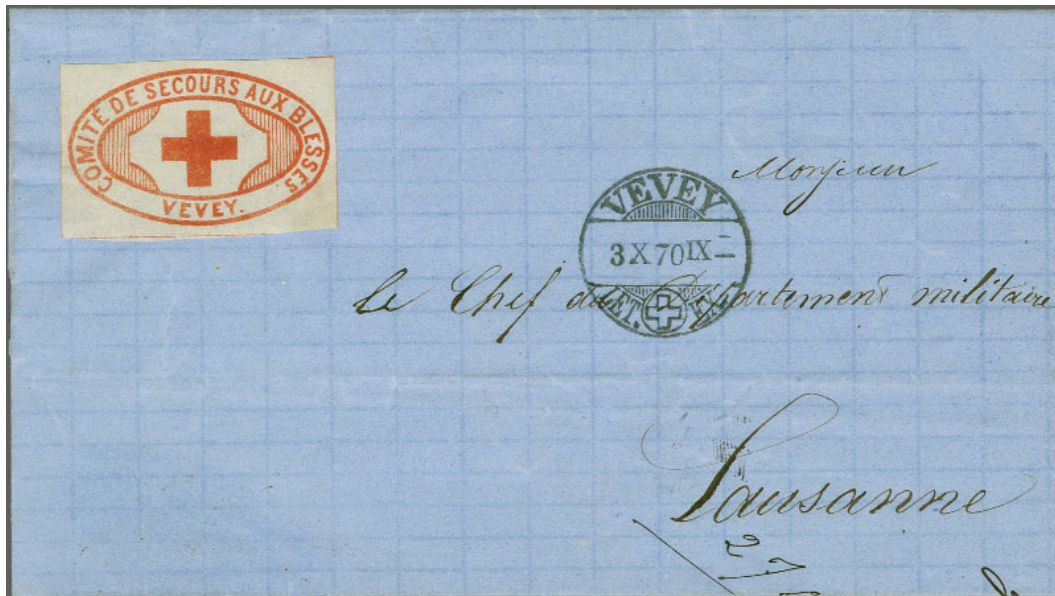 COMITÉ DE SECOURS AUX BLESSÉS.
VEVEY.
VEVEY
3 X 70 IX
LET. EXP
Monsieur
le Chef du Département militaire
Lausanne
27